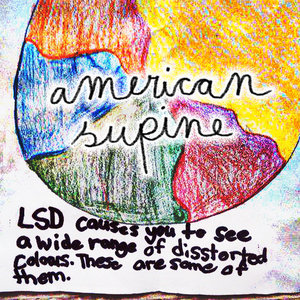 american
supine
LSD causes you to see
a wide range of disstorted
colours. These are some of
them.